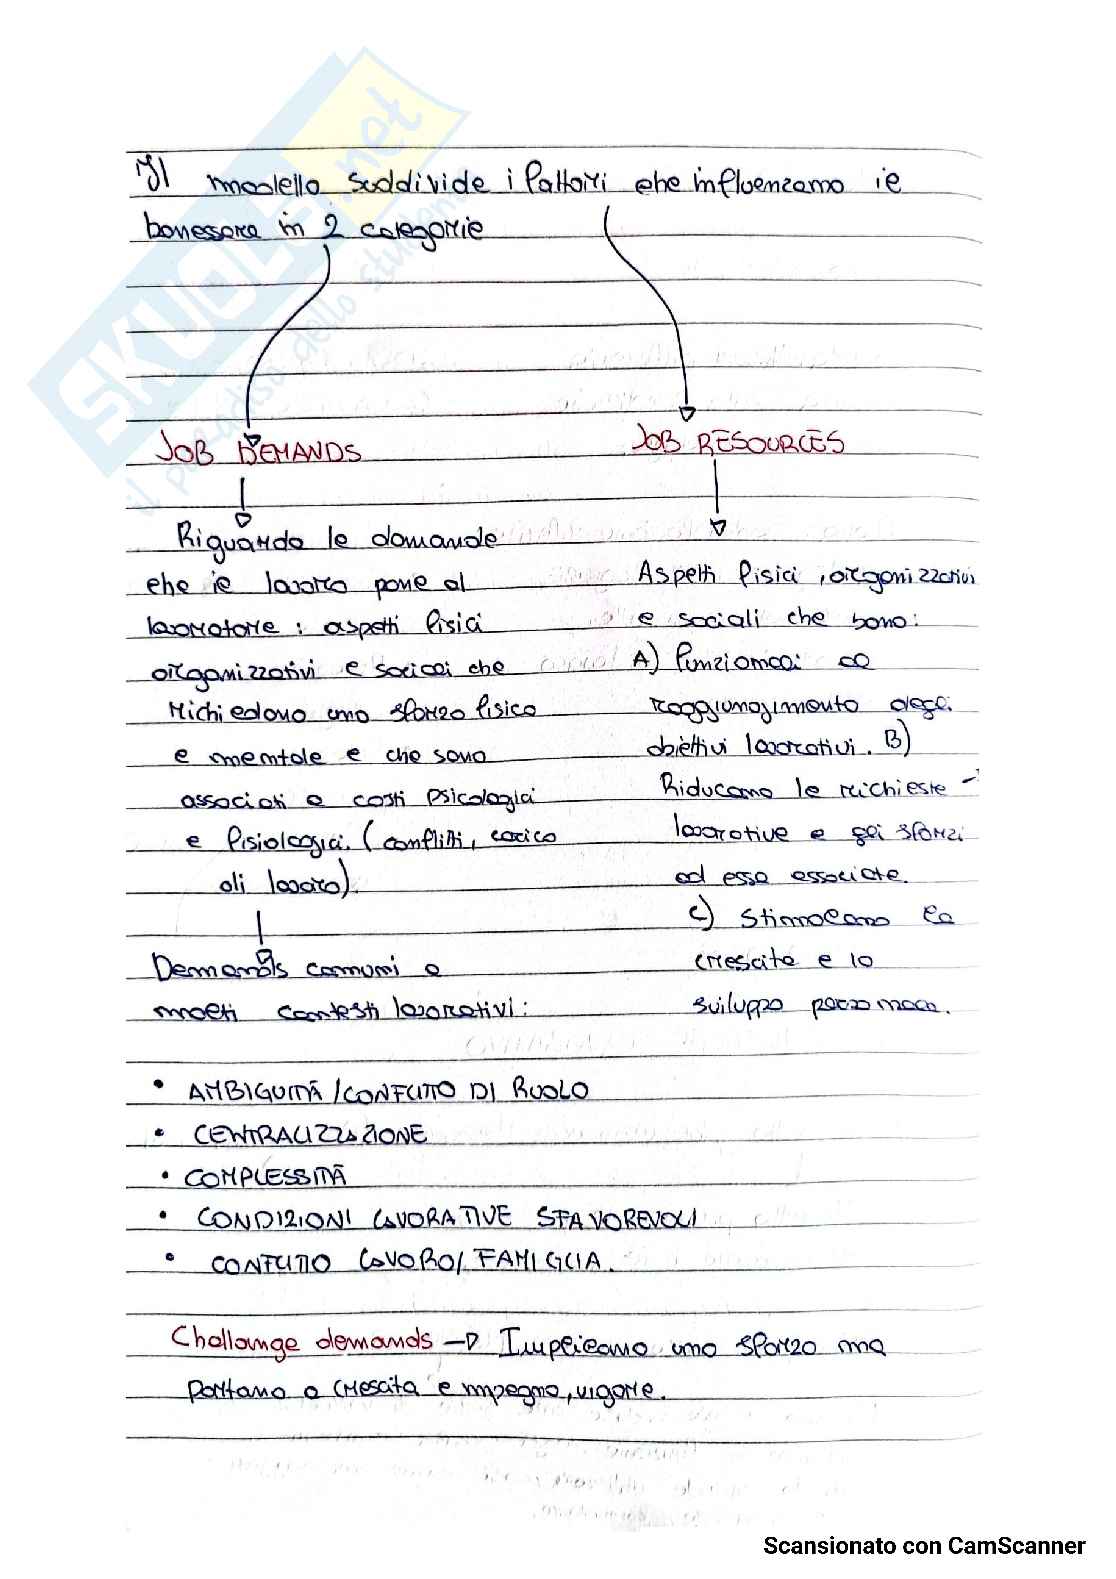 Il modello suddivide i fattori che influenzano il
benessere in 2 categorie
JOB DEMANDS
Riguarda le domande
che il lavoro pone al
lavoratore: aspetti fisici
organizzativi e sociali che
richiedono uno sforzo fisico
e mentale e che sono
associati a costi psicologici
e fisiologici. (conflitti, carico
di lavoro).
Demands comuni a
molti contesti lavorativi:
JOB RESOURCES
Aspetti fisici, organizzativi
e sociali che sono:
A) Funzionali al
raggiungimento degli
obiettivi lavorativi. B)
Riducano le richieste
lavorative e gli sforzi
ad esse associate.
C) Stimolano la
crescita e lo
sviluppo personale.
• AMBIGUITÀ/CONFLITTO DI RUOLO
• CENTRALIZZAZIONE
• COMPLESSITÀ
• CONDIZIONI LAVORATIVE SFAVOREVOLI
• CONFLITTO LAVORO/FAMIGLIA.
Challange demands → Implicano uno sforzo ma
portano a crescita e impegno, vigore.
SKUOLA.net
il paradiso dello studente
Scansionato con CamScanner